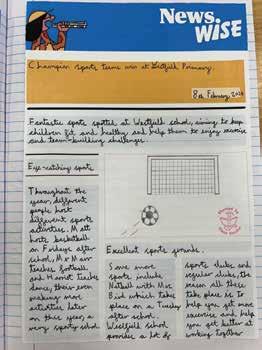 News
WISE
Champion sports teams win at Westfield Primary.
8th February, 2024
Fantastic sports spotted at Westfield school, aiming to keep
children fit and healthy and help them to enjoy exercise
and team-building challenges.
Eye-catching sports
Throughout the
year, different
people host
different sports
activities. Matt
hosts basketball
on Fridays after
school, Mr Marr
teaches football
and Harriet teaches
dance, there's even
making more
activities later
on this year, a
very sporty school
Excellent sports grounds.
Some more
sports include
Netball with Mrs
which takes
place on a Tuesday
after school.
Westfield school
provides a lot of
sports clubs and
regular clubs, the
reason all these
take place is to
help you get more
exercise and help
you get better at
working together